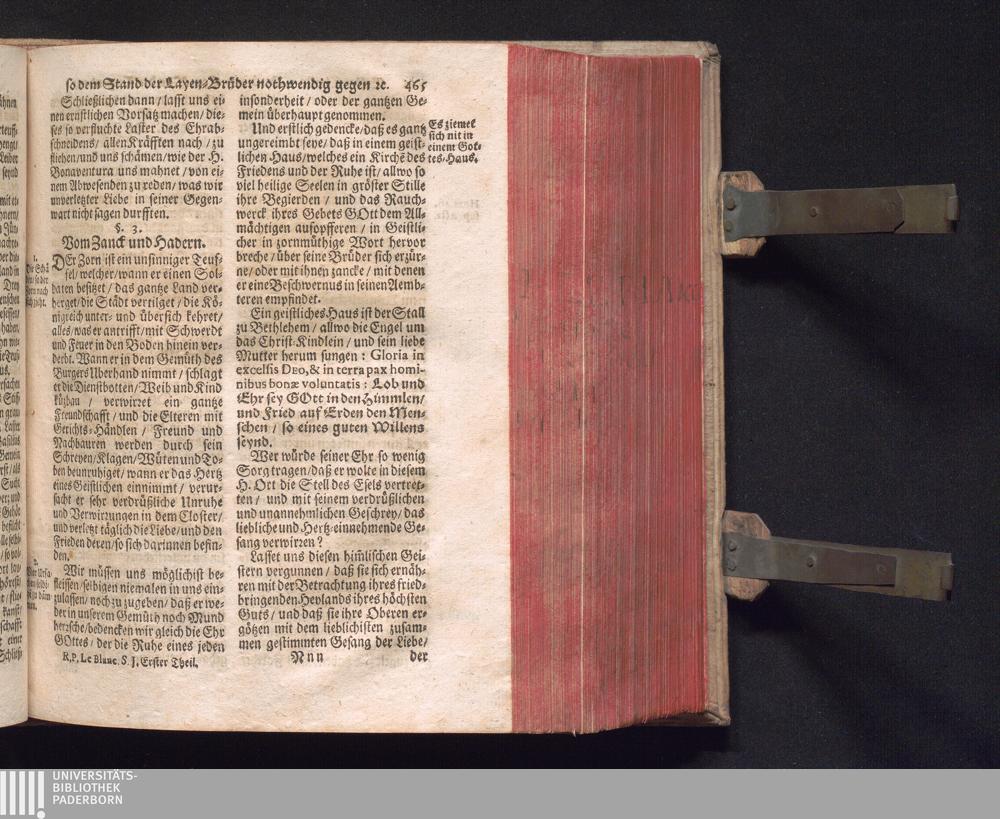 so dem Stand der Layen-Brüder nothwendig gegen ꝛc. 465
Schließlichen dann / lasst uns ei-
nen ernstlichen Vorsatz machen / die-
ses so verfluchte Laster des Ehrab-
schneidens / allen Kräfften nach / zu
fliehen / und uns schämen / wie der H.
Bonaventura uns mahnet / von ei-
nem Abwesenden zu reden / was wir
unverletzter Liebe in seiner Gegen-
wart nicht sagen durfften.
§. 3.
Vom Zanck und Hadern.
1.
Die Schä-
DEr Zorn ist ein unsinniger Teuf-
fel / welcher / wann er einen Sol-
daten besitzet / das gantze Land ver-
herget / die Städt vertilget / die Kö-
nigreich unter- und übersich kehret /
alles / was er antrifft / mit Schwerdt
und Feuer in den Boden hinein ver-
derbt. Wann er in dem Gemüth des
Burgers Uberhand nimmt / schlagt
er die Dienstbotten / Weib und Kind
kützbau / verwirzet ein gantze
Freundschafft / und die Elteren mit
Gerichts-Händlen / Freund und
Nachbauren werden durch sein
Schreyen / Klagen / Wüten und To-
ben beunruhiget / wann er das Hertz
eines Geistlichen einnimmt / verur-
sacht er sehr verdrüßliche Unruhe
und Verwirzungen in dem Closter /
und verletzt täglich die Liebe / und den
Frieden deren / so sich darinnen befin-
den.
2.
Wir müssen uns möglichist be-
fleissen / selbigen niemalen in uns ein-
zulassen / noch zu zugeben / daß er we-
der in unserem Gemüth noch Mund
herzsche / bedencken wir gleich die Ehr
GOttes / der die Ruhe eines jeden
R. P. Le Blanc. S. J. Erster Theil.
insonderheit / oder der gantzen Ge-
mein überhaupt genommen.
Und erstlich gedencke / daß es gantz
ungereimbt seye / daß in einem geist-
lichen Haus / welches ein Kirchẽ des
Friedens und der Ruhe ist / allwo so
viel heilige Seelen in gröster Stille
ihre Begierden / und das Rauch-
werck ihres Gebets GOtt dem All-
mächtigen aufopfferen / in Geistli-
cher in zornmüthige Wort hervor
breche / über seine Brüder sich erzür-
ne / oder mit ihnen zancke / mit denen
er eine Beschwernus in seinen Aemb-
teren empfindet.
Es ziemet
sich nit in
einem Got-
tes-Haus.
Ein geistliches Haus ist der Stall
zu Bethlehem / allwo die Engel um
das Christ-Kindlein / und sein liebe
Mutter herum sungen : Gloria in
excelsis DEO, & in terra pax homi-
nibus bonæ voluntatis : Lob und
Ehr sey GOtt in den Himmlen /
und Fried auf Erden den Men-
schen / so eines guten Willens
seynd.
Wer würde seiner Ehr so wenig
Sorg tragen / daß er wolte in diesem
H. Ort die Stell des Esels vertret-
ten / und mit seinem verdrüßlichen
und unannehmlichen Geschrey / das
liebliche und Hertz-einnehmende Ge-
sang verwirzen?
Lasset uns diesen him̃lischen Gei-
stern vergunnen / daß sie sich ernäh-
ren mit der Betrachtung ihres fried-
bringenden Heylands ihres höchsten
Guts / und daß sie ihre Oberen er-
götzen mit dem lieblichisten zusam-
men gestimmten Gesang der Liebe /
Nnn
der
UNIVERSITÄTS-
BIBLIOTHEK
PADERBORN